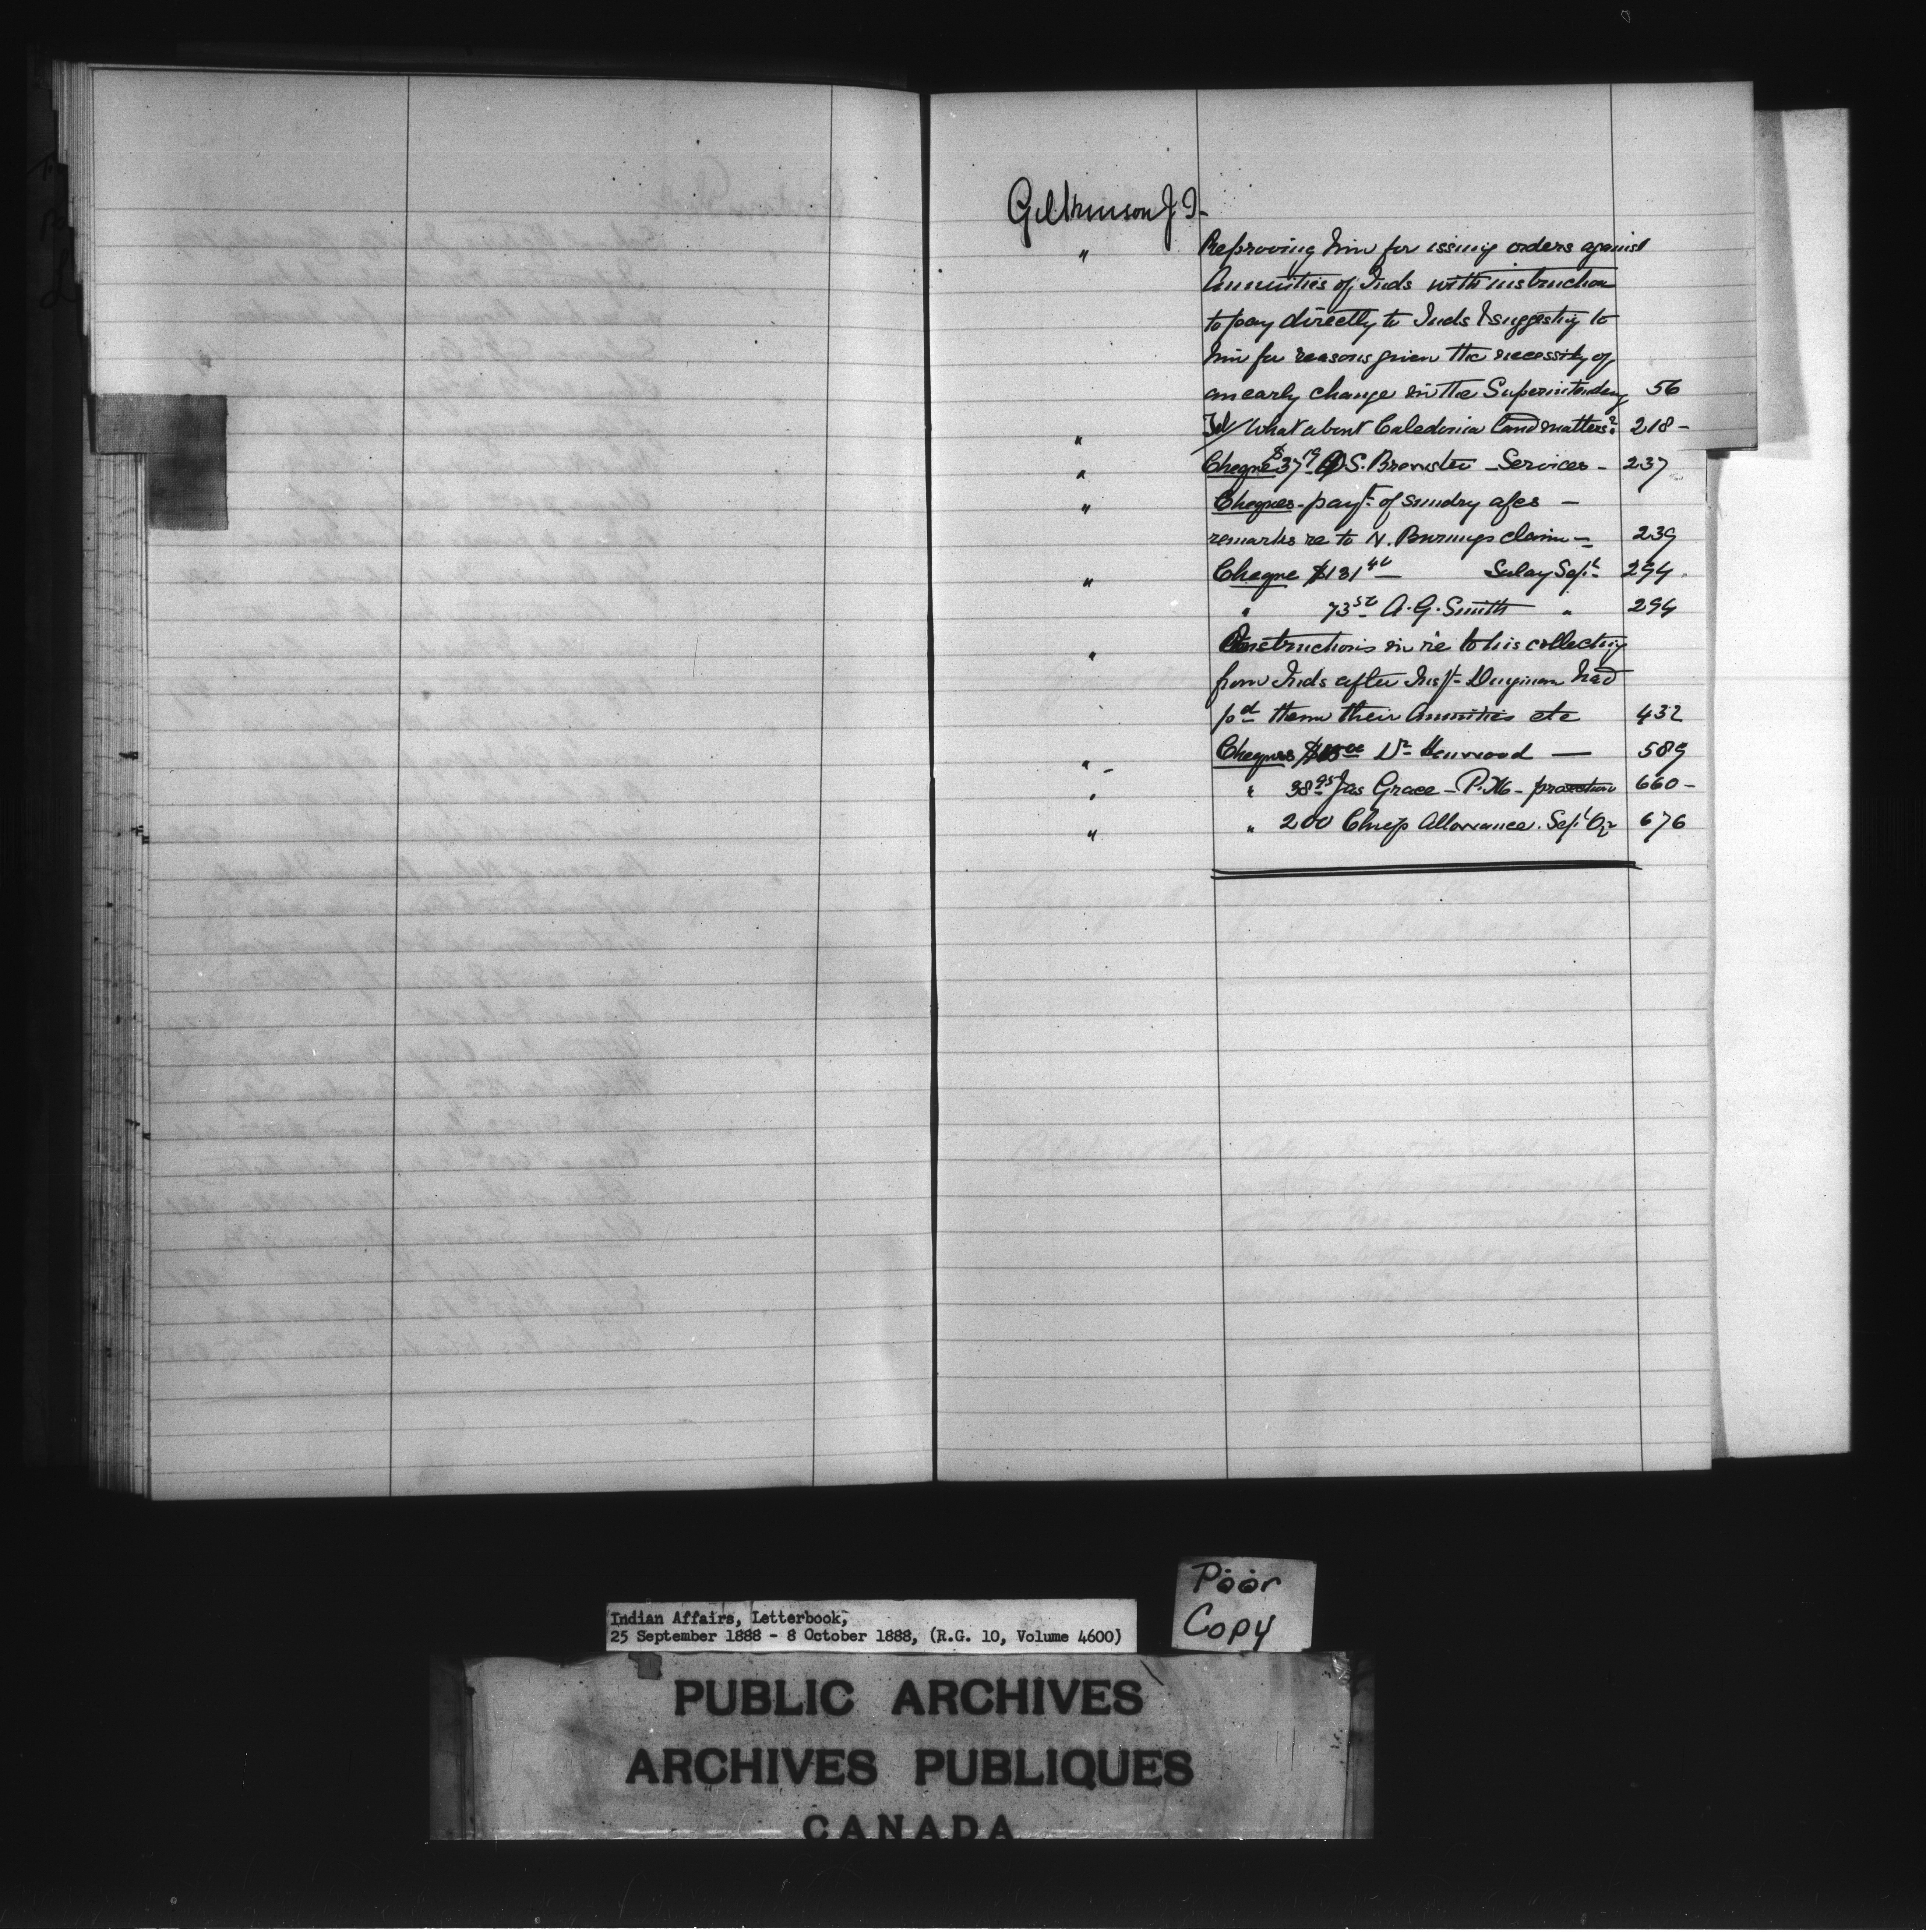 Gilkinson J. T.
" Reproving him for issuing orders against
Annuities of Inds with instruction
to pay directly to Inds & suggesting to
him for reasons given the necessity of
an early change in the Superintendency 56
" Tel/ What about Caledonia land matters? 218 -
" Cheque $37 19 S. Brewster - Services - 237
" Cheques - payt. of sundry a/cs -
remarks re to N. Burnings claim - 239
" Cheque $131 40 Salary Sept. 294
" 73 50 A. G. Smith " 294
" Instructions in re to his collecting
from Inds after Inspt. Dingman had
pd them their Annuities etc 432
" - Cheques Dr Henwood — 589
" " 38 95 Jas Grace - P.M. - 660 -
" " 200 Chiefs Allowance. Sept Qr 676
Indian Affairs, Letterbook,
25 September 1888 - 8 October 1888, (R.G. 10, Volume 4600)
Poor
Copy
PUBLIC ARCHIVES
ARCHIVES PUBLIQUES
CANADA